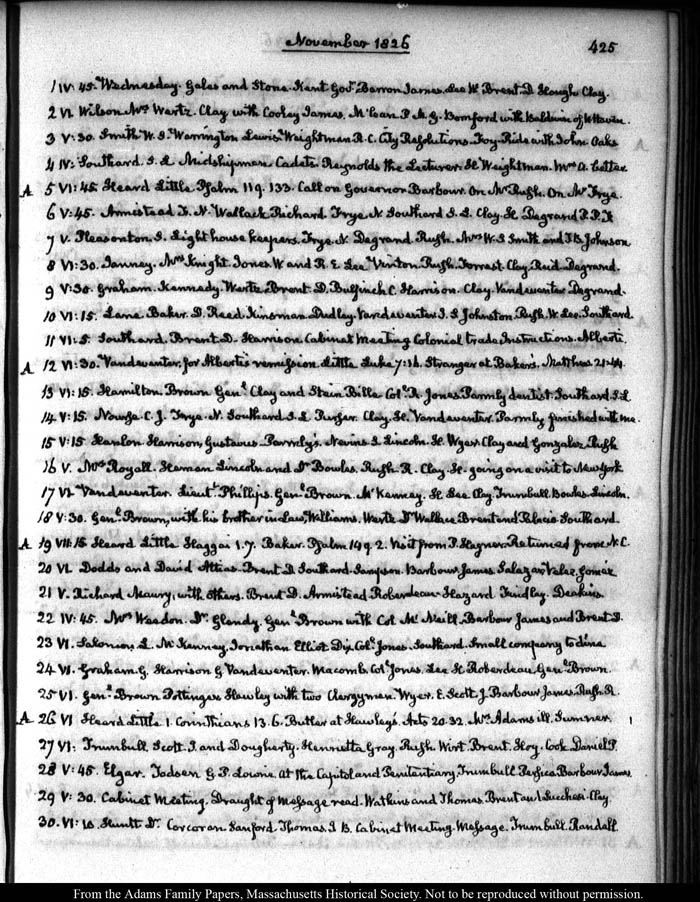 November 1826
425
1 IV:45. Wednesday. Gales and Seaton. Kent Govr. Barron James. Lee W. Brent D. Hough. Clay.
2 VI. Wilson Mrs Wertz. Clay with Cooley James. McLean P.M.G. Bomford with Baldwin of N.Haven.
3 V:30. Smith W.S. Warrington Lewis. Weightman R.C. City Resolutions. Foy. Ride with John. Oaks
4 IV: Southard S.L. Midshipmen. Cadets. Reynolds the Lecturer. H. Weightman. Mrs A. better
A 5 VI:45 Heard Little. Psalm 119. 133. Call on Governor Barbour. On Mr Rush. On Mr Frye.
6 V:45. Armistead F. N. Wallack Richard. Frye N. Southard S.L. Clay. H. Degrand P.P.F
7 V. Pleasonton. S. Light house keepers. Frye. N. Degrand. Rush. Mrs W.S. Smith and J.B. Johnson
8 VI:30. Janney. Mrs Knight. Jones W. and R. E. Lee. Vinton. Rush. Forrest. Clay. Reid. Degrand.
9 V:30. Graham. Kennedy. Wertz. Brent. D. Bulfinch C. Harrison. Clay. Vandeventer. Degrand.
10 VI:15. Lane. Baker. D. Reed. Kinsman. Dudley. Vandeventer. J.S Johnston. Rush. W. Lee. Southard
11 VI:5. Southard. Brent. D. Harrison. Cabinet Meeting Colonial trade Instructions. Alberti.
A 12 VI:30. Vandeventer, for Alberti's remission. Little Luke 7:16. Stranger at Baker's. Matthew 21:44.
13 VI:15. Hamilton. Brown Genl. Clay and Stein. Bille. Colr. R. Jones. Parmly dentist. Southard. S.L
14 V:15. Nourse. C.J. Frye. N. Southard S.L. Clay. H. Vandeventer. Parmly finished with me.
15 V:15 Hanlon. Harrison, Gustavus. Parmly's. Nevins. Lincoln. H. Wyer. Clay and Gonzalez. Rush
16 V. Mrs Royall. Heman Lincoln and Dr Bowles. Rush. R. Clay. H. going on a visit to New York
17 VI. Vandeventer. Lieut. Phillips. Genl. Brown. McKenney. H. Lee. Clay. Trumbull. Bowles. Lincoln.
18 V:30. Genl. Brown, with his brother in Law, Williams. Wertz. Dr Wallace. Brent and Palacio. Southard.
A 19 VII:15 Heard Little Haggai 1.7. Baker. Psalm 149. 2. Visit from P. Hagner. Returned from N.C.
20 VI. Dodds and David Attias. Brent. D. Southard. Sampson. Barbour James. Salazar. Velez. Gomez
21 V. Richard Maury, with others. Brent D. Armistead. Roberdeau. Hazard. Findlay. Deakins
22 IV:45. Mrs Weedon. Dr. Glendy. Genl. Brown with Col. McNeill. Barbour James and Brent D.
23 VI. Salomon. L. McKenney. Jonathan Elliot. Dix. Coll. Jones. Southard. Small company to dine
24 VI. Graham. G. Harrison G. Vandeventer. Macomb. Coll Jones. Lee. H. Roberdeau. Genl. Brown.
25 VI. Genl. Brown. Pottinger. Hawley with two Clergymen. Wyer. E. Scott. J. Barbour James. Rush. R.
A 26 VI Heard Little 1. Corinthians 13. 6. Butler at Hawley's. Acts 20.32. Mrs Adams ill. Sumner.
27 VI: Trumbull. Scott. J. and Dougherty. Henrietta Gray. Rush. Wirt. Brent. Hoy. Cook. Daniel P.
28 V:45. Elgar. Todsen G.P. Lowrie. At the Capitol and Penitentiary. Trumbull. Persico. Barbour James
29 V:30. Cabinet Meeting. Draught of Message read. Watkins and Thomas. Brent and Lucchesi. Clay
30. VI:10. Huntt Dr. Corcoran. Sanford. Thomas. J. B. Cabinet Meeting. Message. Trumbull. Randall
From the Adams Family Papers, Massachusetts Historical Society. Not to be reproduced without permission.